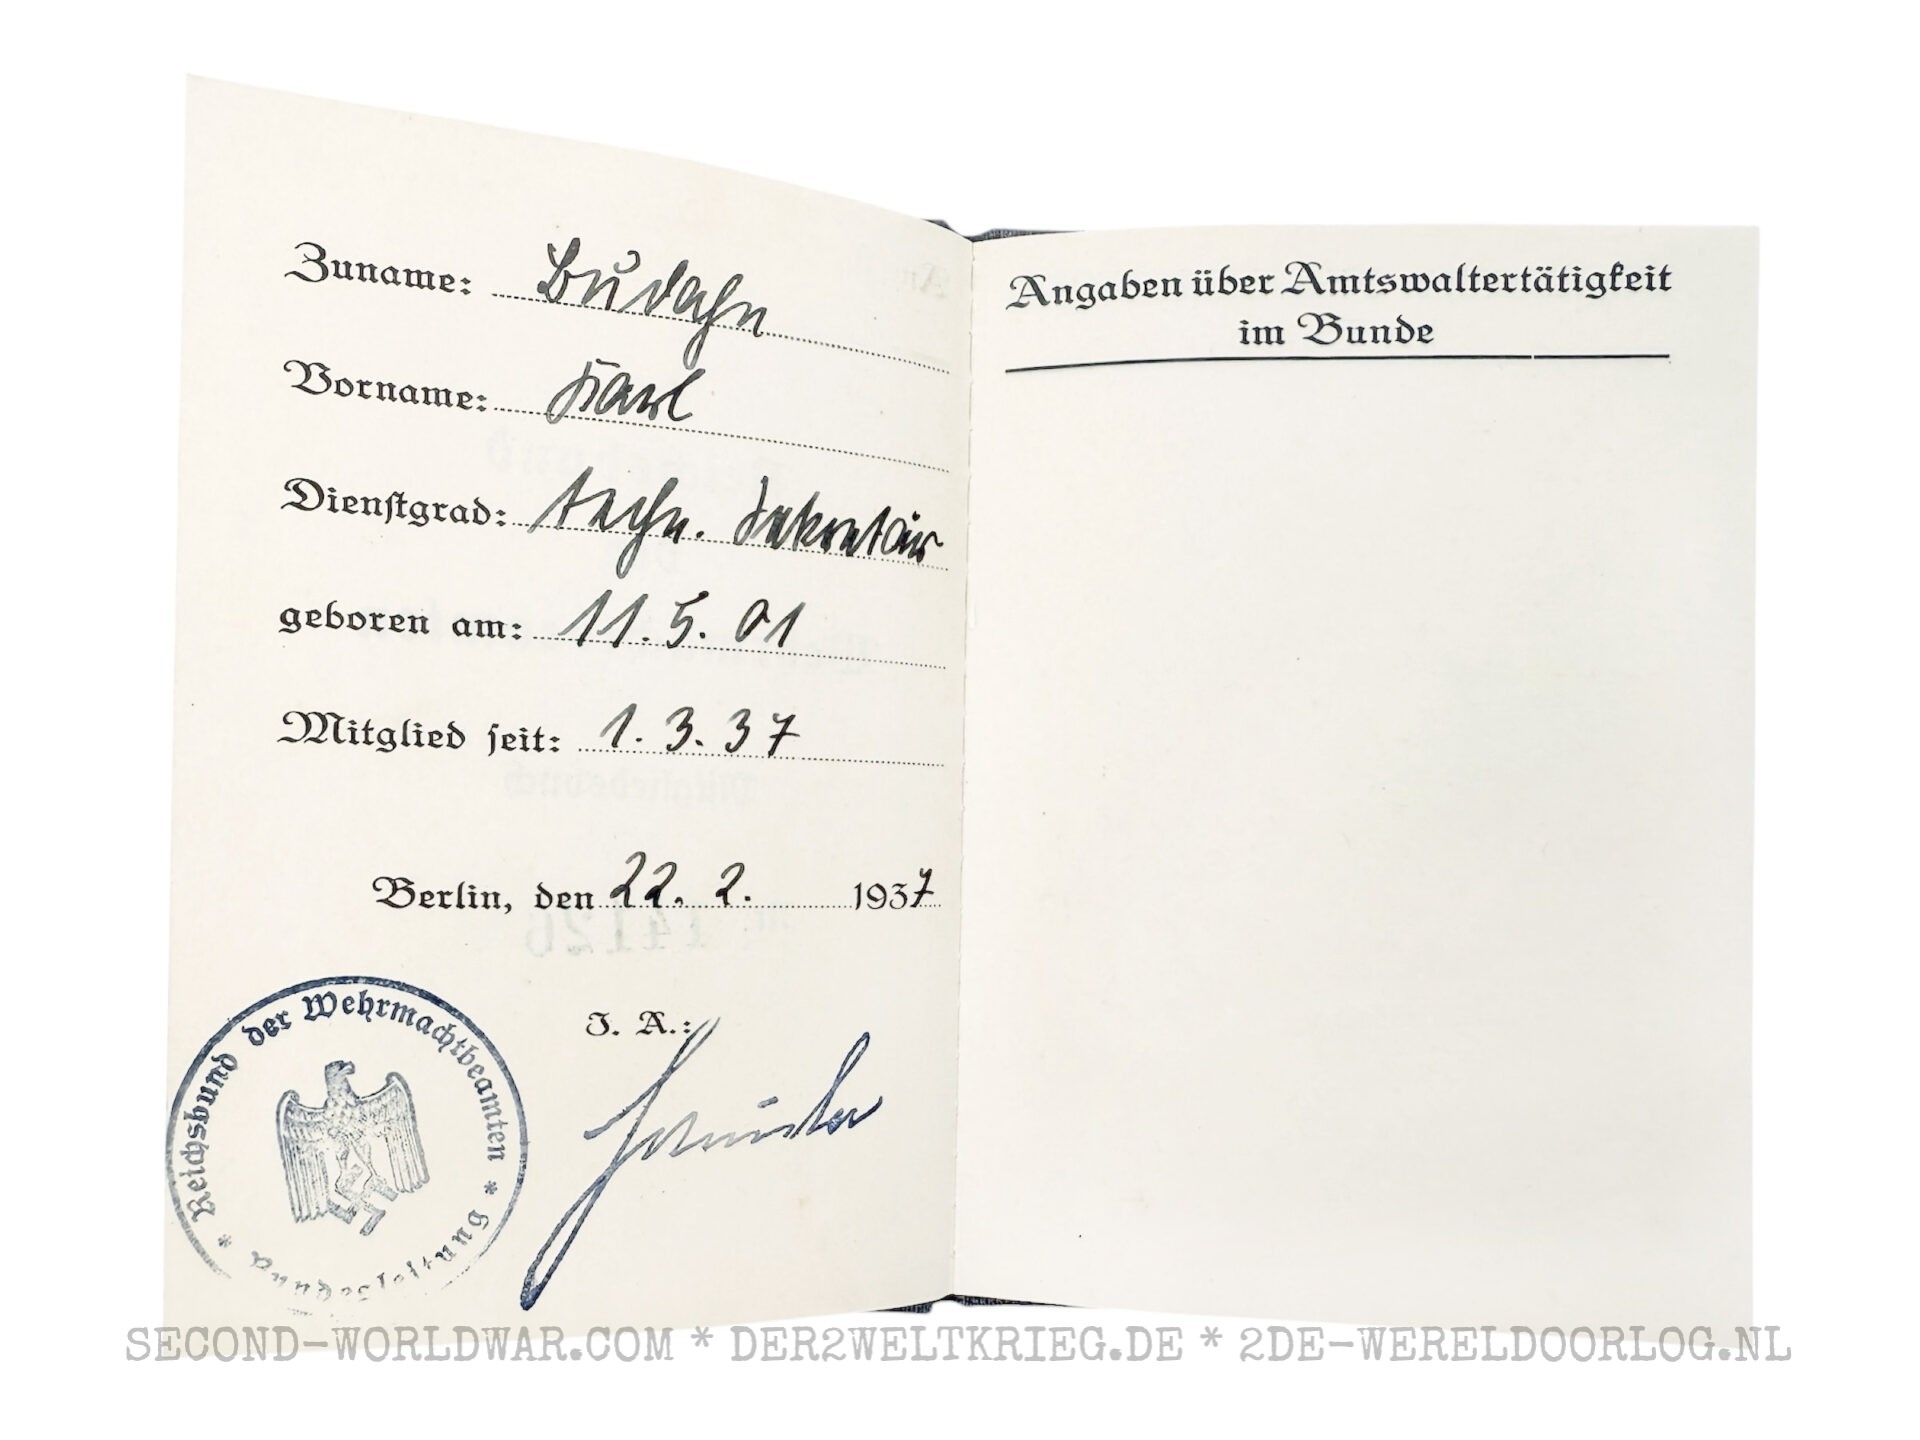 Zuname: Budahn
Vorname: Karl
Dienstgrad: techn. Sekretär
geboren am: 11. 5. 01
Mitglied seit: 1. 3. 37
Berlin, den 22. 2. 1937
J. A.:
* Reichsbund der Wehrmachtbeamten *
Bundesleitung
Angaben über Amtswaltertätigkeit
im Bunde
14126
SECOND-WORLDWAR.COM * DER2WELTKRIEG.DE * 2DE-WERELDOORLOG.NL